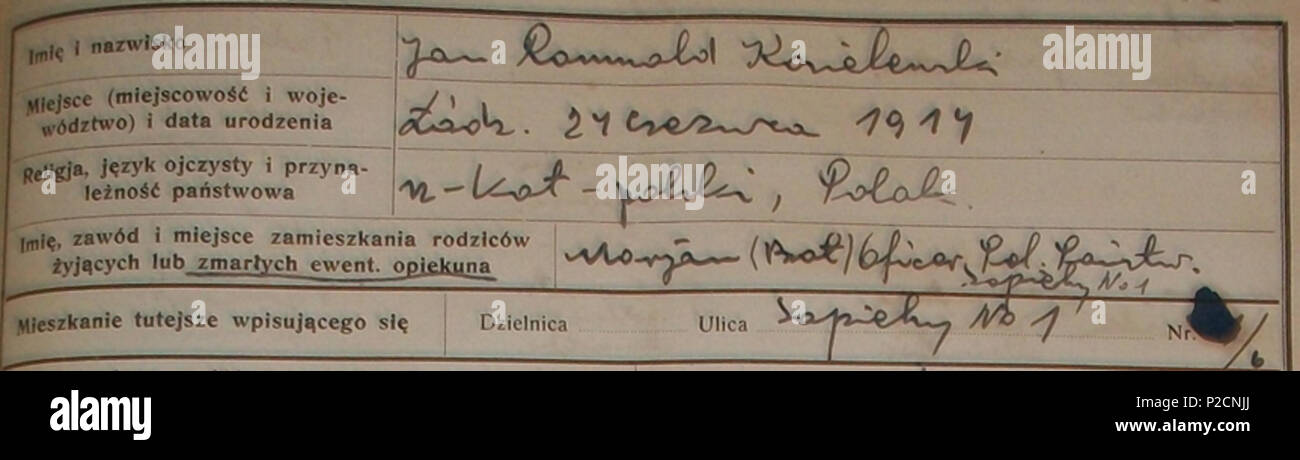 Imię i nazwisko Jan Romuald Kozielewski
Miejsce (miejscowość i woje-
wództwo) i data urodzenia Łódź. 24 czerwca 1914
Religja, język ojczysty i przyna-
leżność państwowa rz-kat-polski, Polak.
Imię, zawód i miejsce zamieszkania rodziców
żyjących lub zmarłych ewent. opiekuna Marjan (Brat) Oficer Pol. Państw.
Sapiehy No 1
Mieszkanie tutejsze wpisującego się Dzielnica Ulica Sapiehy No 1 Nr. /6
alamy
Image ID: P2CNJJ
www.alamy.com